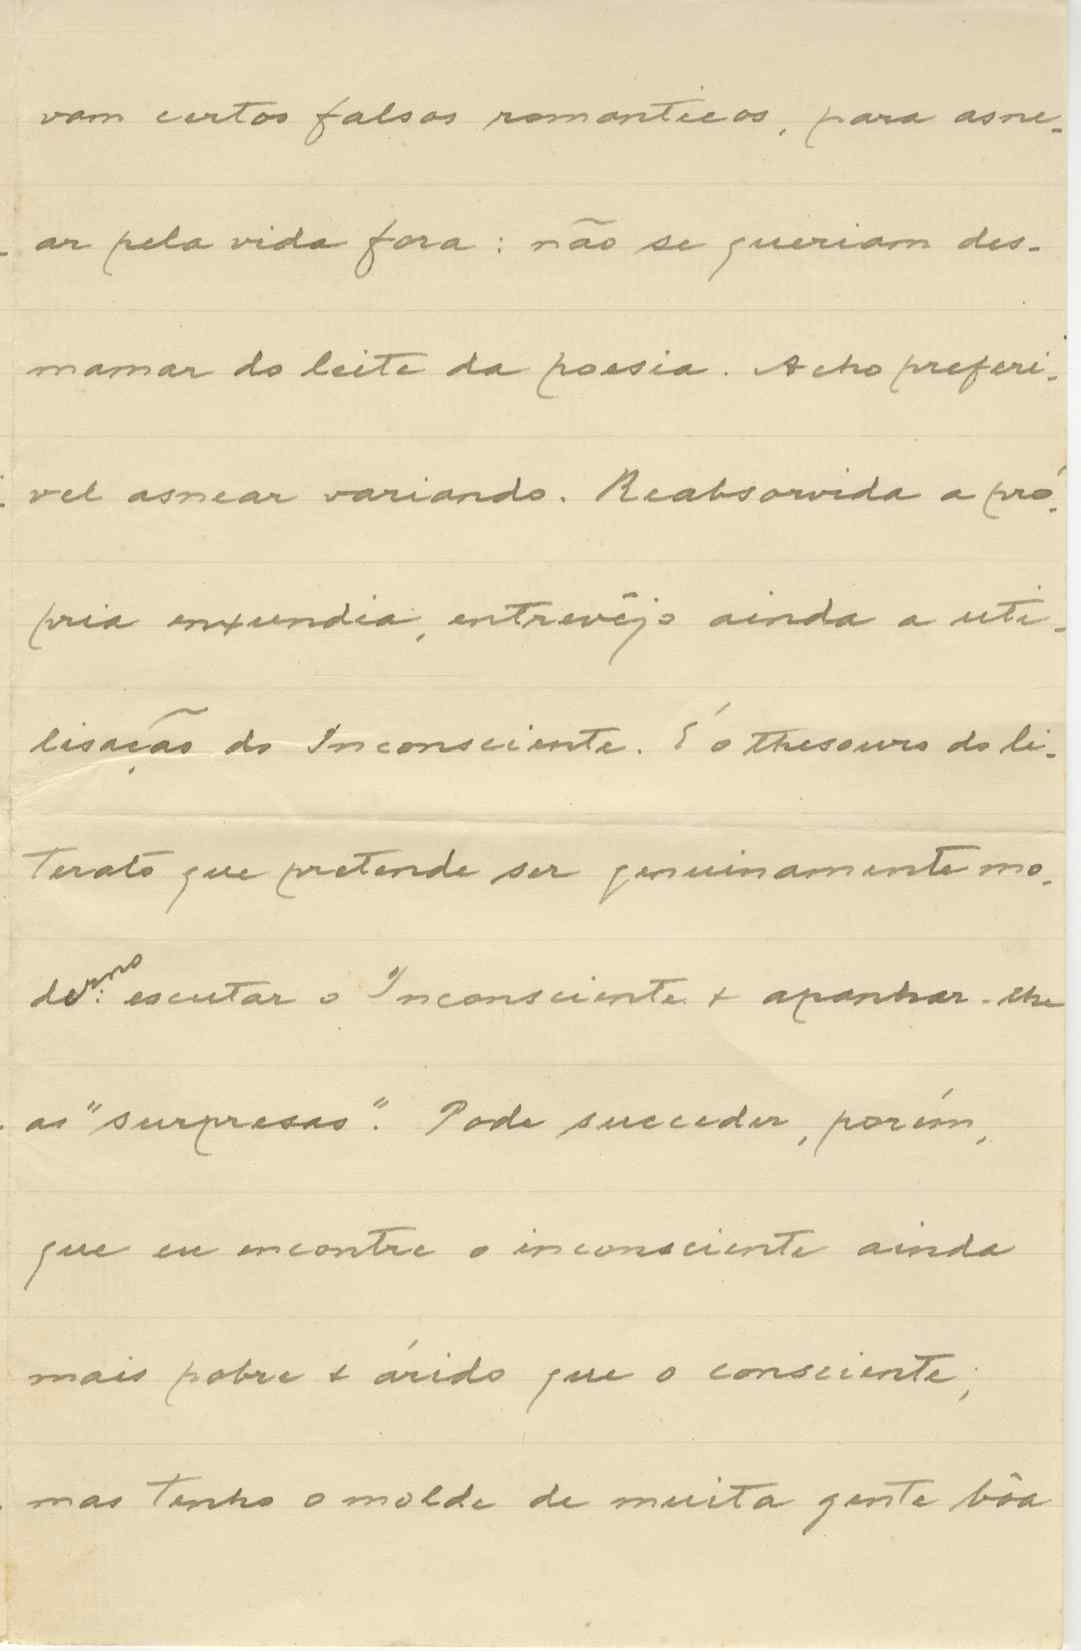 vam certos falsos romanticos, para asne-
ar pela vida fora: não se queriam des-
mamar do leite da poesia. Acho preferi-
vel asnear variando. Reabsorvida a pró-
pria enxundia, entrevêjo ainda a uti-
lisação do Inconsciente. É o thesouro do li-
terato que pretende ser genuinamente mo-
derno: escutar o Inconsciente & apanhar-lhe
as "surpresas". Pode succeder, porém,
que eu encontre o inconsciente ainda
mais pobre & árido que o consciente;
mas tenho o molde de muita gente bôa